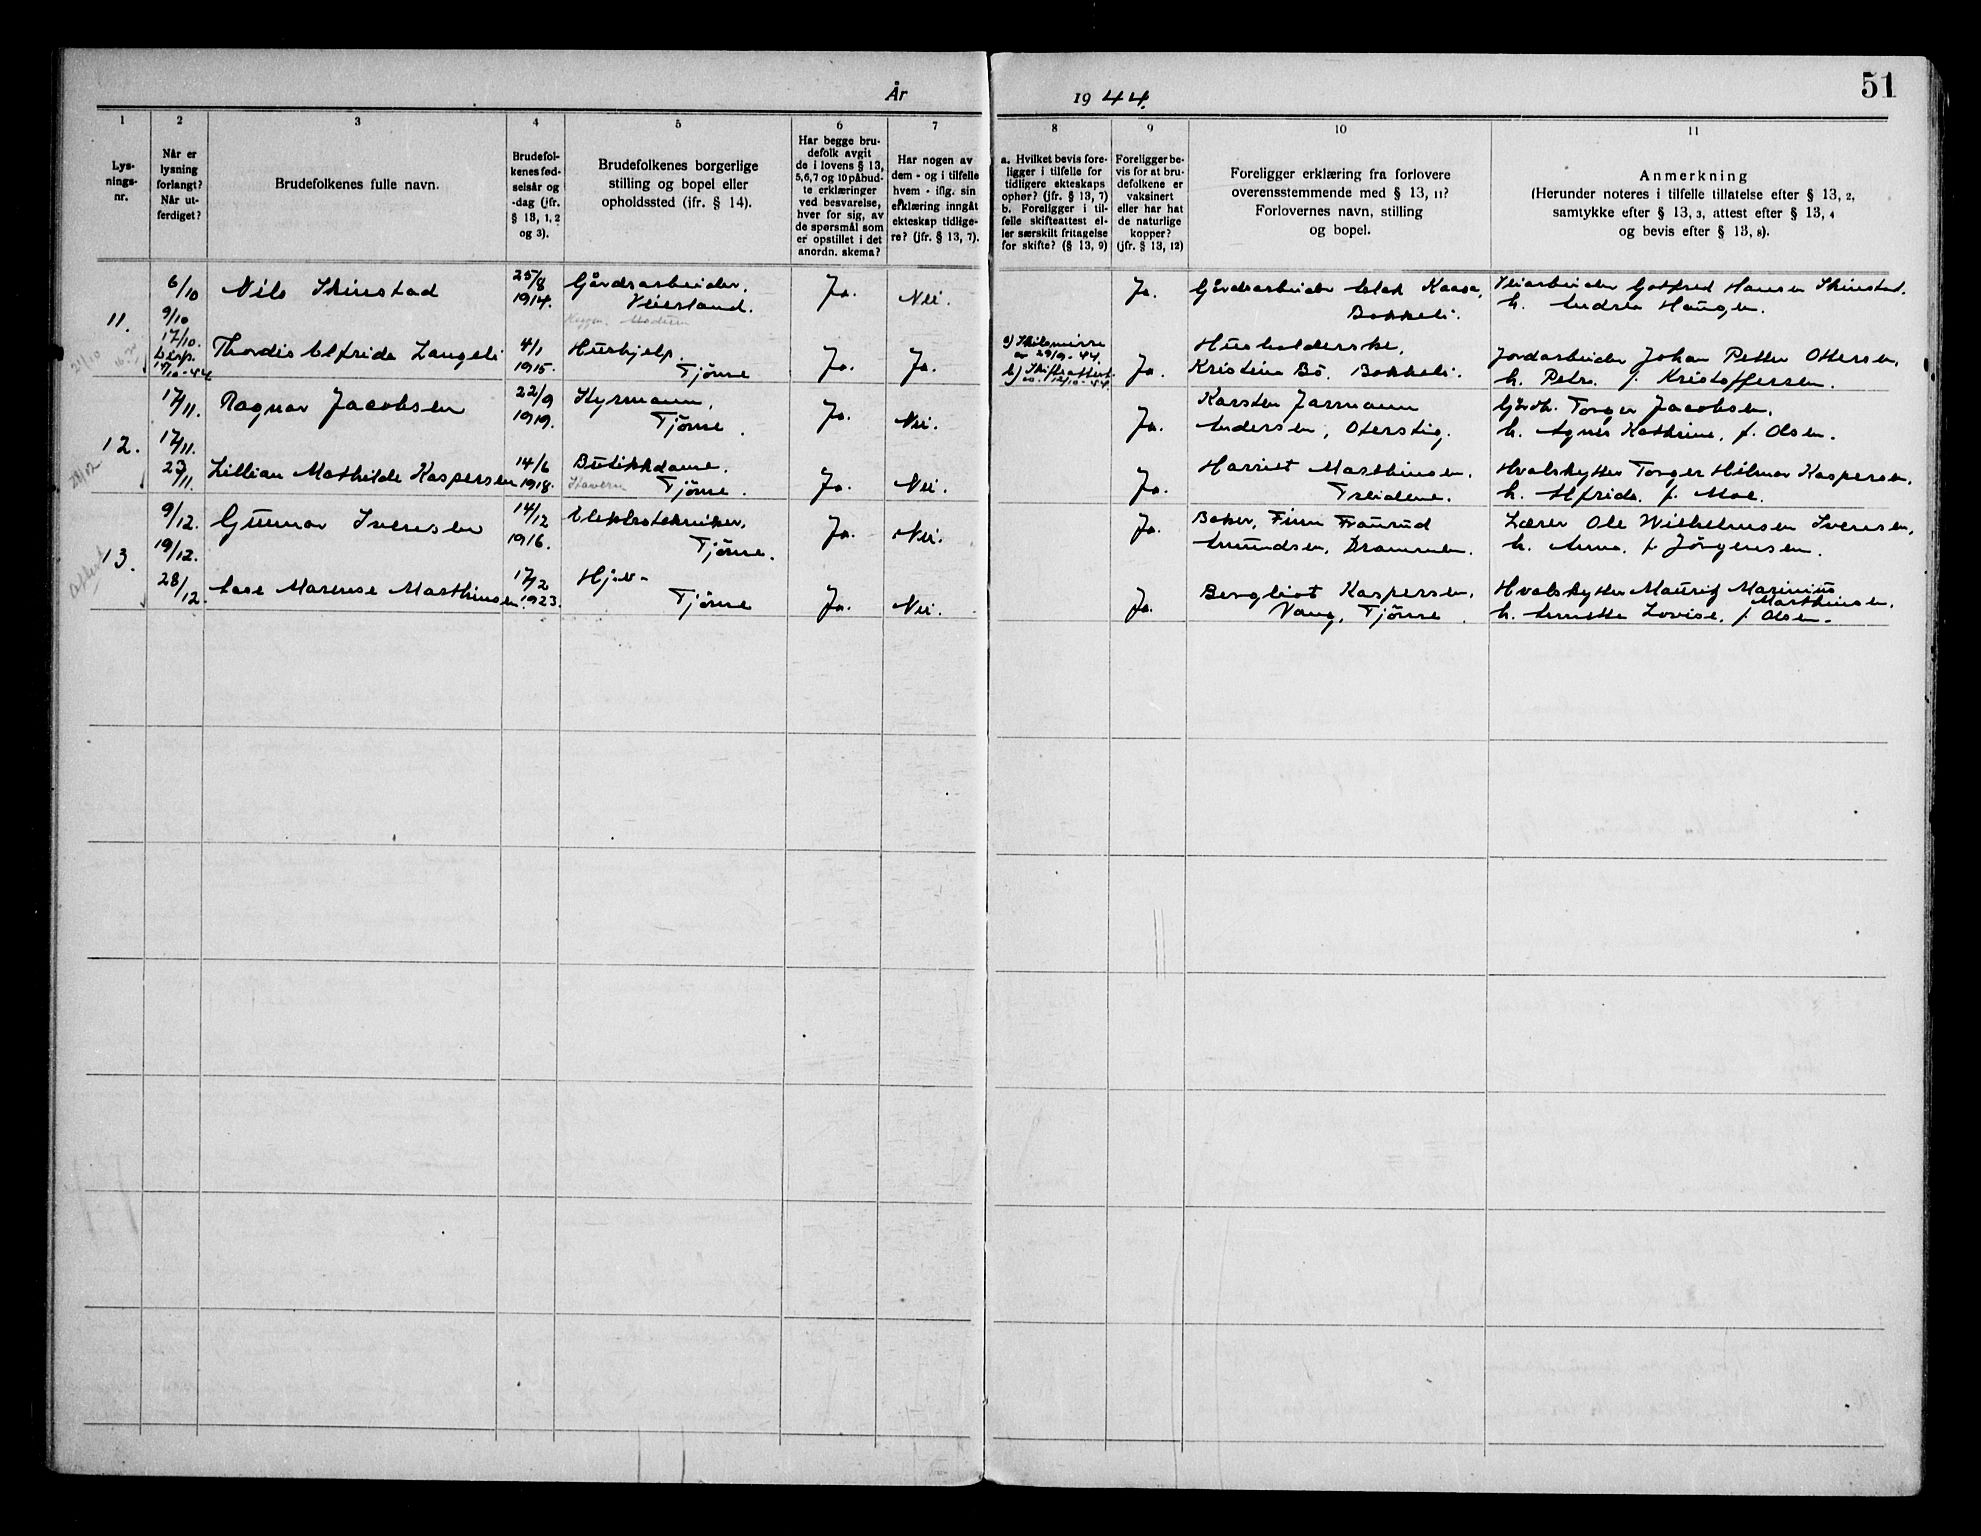 År 1944.
51
1 2 3 4 5 6 7 8 9 10 11
Lys-
nings-
nr.
Når er
lysning
forlangt?
Når ut-
ferdiget?
Brudefolkenes fulle navn.
Brudefol-
kenes fød-
selsår og
-dag (jfr.
§ 13, 1, 2
og 3).
Brudefolkenes borgerlige
stilling og bopel eller
opholdssted (jfr. § 14).
Har begge bru-
defolk avgit
de i lovens § 13,
5, 6, 7 og 10 påbud-
te erklæringer
ved besvarelse,
hver for sig, av
de spørsmål som
er opstillet i det
anordn. skema?
Har nogen av
dem - og i tilfelle
hvem - iflg. sin
erklæring inngått
ekteskap tidlige-
re? (jfr. § 13, 7).
a. Hvilket bevis fore-
ligger i tilfelle for
tidligere ekteskaps
ophør? (jfr. § 13, 7)
b. Foreligger i til-
felle skifteattest el-
ler særskilt fritagelse
for skifte? (§ 13, 9)
Foreligger be-
vis for at bru-
defolkene er
vaksinert
eller har hat
de naturlige
kopper?
(jfr. § 13, 12)
Foreligger erklæring fra forlovere
overensstemmende med § 13, 11?
Forlovernes navn, stilling
og bopel.
Anmerkning
(Herunder noteres i tilfelle tillatelse efter § 13, 2,
samtykke efter § 13, 3, attest efter § 13, 4
og bevis efter § 13, 8).
11.
6/10
9/10
17/10.
Nils Skinstad
25/8
1914.
Gårdsarbeider.
Veierland.
Modum
Ja.
Nei.
Ja.
Gårdsarbeider Kaasa,
Bakkeli.
Veiarbeider Gotfred Hansen Skinstad.
h. Andrea Haugen.
21/10
Disp.
17/10-44
Thordis Elfrida Langeli
4/1
1915.
Hushjelp.
Tjøme
Ja.
Ja.
a) Skilsmisse
av 29/9-44.
b) Skifteattest
av 12/10-44
Ja.
Husholderske,
Kristine Bö. Bakkeli.
Jordarbeider Johan Petter Ottersen,
h. Petra f. Kristoffersen.
12.
17/11.
17/11.
Ragnar Jacobsen
22/9
1919.
Styrmann,
Tjøme.
Ja.
Nei.
Ja.
Karsten Jarmann
Andersen, Oterstig.
Gårdb. Torger Jacobsen,
h. Agnes Kathrine, f. Olsen.
28/12
27/11.
Lillian Mathilde Kaspersen
14/6
1918.
Butikkdame.
Stavern
Tjøme.
Ja.
Nei.
Ja.
Harriet Marthinsen.
Treidene.
Hvalskytter Torger Hilmar Kaspersen,
h. Alfrida. f. Moe.
13.
9/12.
19/12.
Gunnar Iversen
14/12
1916.
Elektrotekniker,
Tjøme.
Ja.
Nei.
Ja.
Baker, Finn Fraurud
Amundsen, Drammen.
Lærer Ole Wilhelmsen Iversen,
h. Anna. f. Jörgensen.
Attest
28/12.
Aase Marense Marthinsen.
17/2
1923.
Hj.v-
Tjøme
Ja.
Nei.
Ja.
Bergliot Kaspersen,
Vang, Tjøme.
Hvalskytter Mauritz Marinius
Marthinsen,
h. Annette Lovise, f. Olsen.